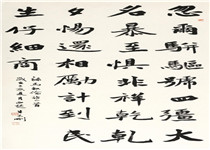 忽爾駢驅號四彊大
名暴至惧非祥乾
々夕惕還相勵計到民
生仔細商